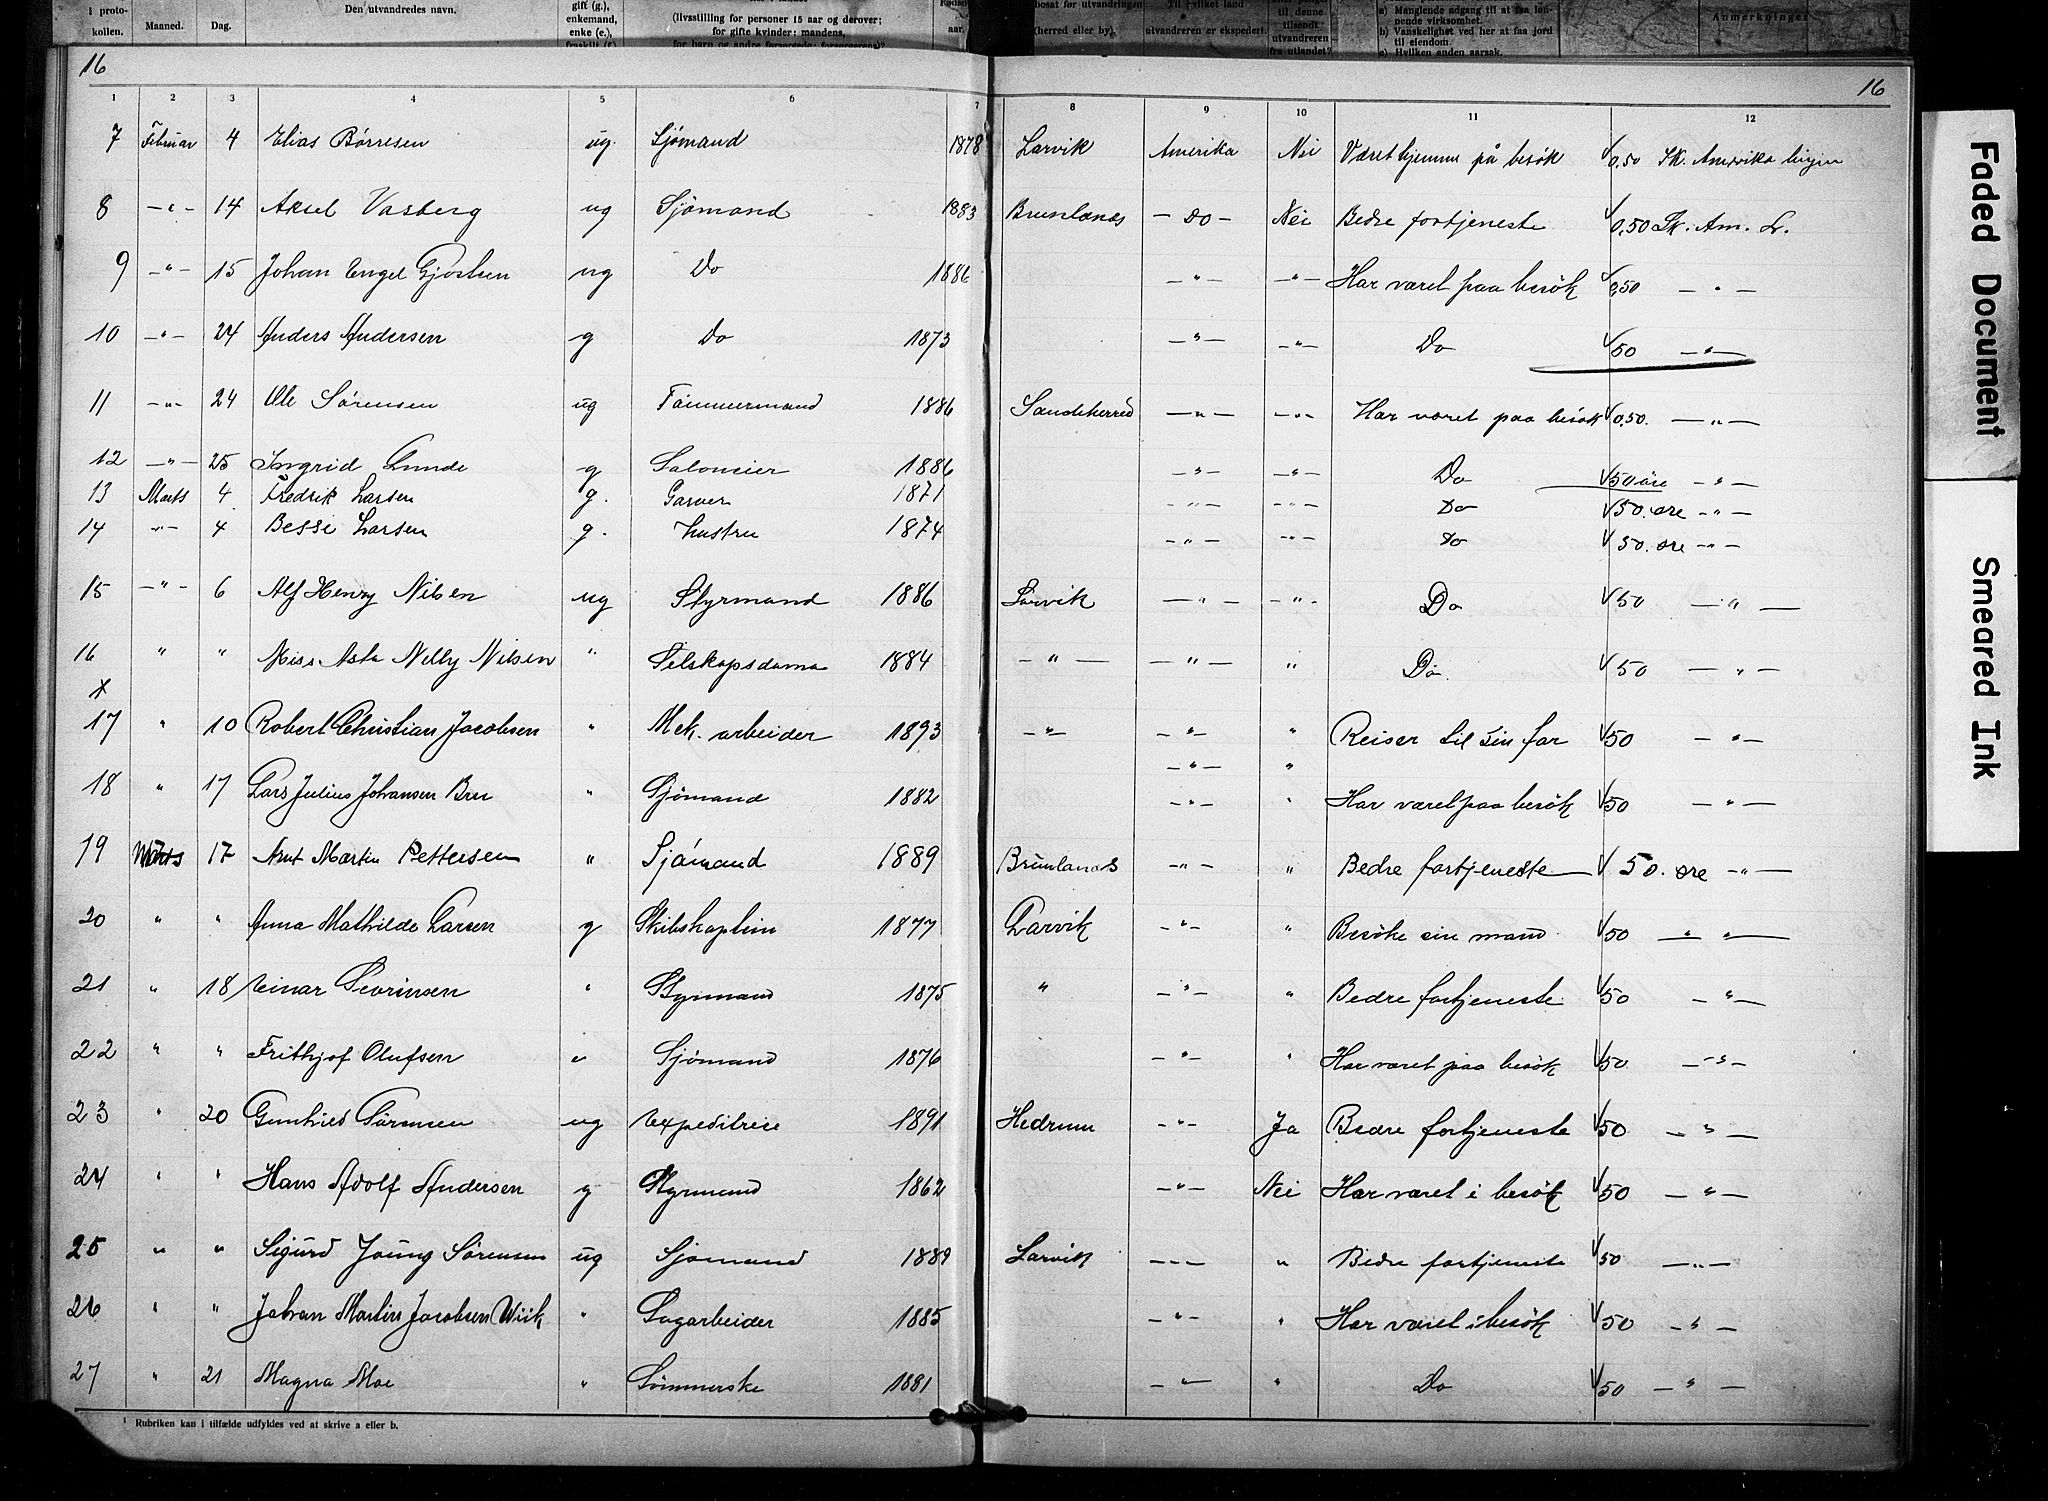 i proto-
kollen. Maaned. Dag. Den utvandredes navn. gift (g.), enkemand, enke (e.), (livsstilling for personer 15 aar og derover; for gifte kvinder: mandens, aar. bosat før utvandringen (herred eller by). Til hvilket land utvandreren er ekspedert. til denne tilsendt utvandreren fra utlandet? a) Manglende adgang til at faa løn-
nende virksomhet.
b) Vanskelighet ved her at faa jord
til eiendom.
c) Hvilken anden aarsak. Anmerkninger
16 16
1 2 3 4 5 6 7 8 9 10 11 12
7 Februar 4 Elias Börresen ug. Sjömand 1878 Larvik Amerika Nei Været hjemme på besök √ 0,50 Sk. Amerika linjen
8 -"- 14 Aksel Vasberg ug Sjömand 1883 Brunlanes - Do - Nei Bedre fortjeneste √ 0,50 Sk. Am. L.
9 -"- 15 Johan Engel Gjostsen ug Do 1886 -"- -"- Har været paa besök √ 0,50 - " -
10 -"- 24 Anders Andersen g Do 1873 -"- -"- Do √ 50 -"-
11 -"- 24 Ole Sörensen ug Tömmermand 1886 Sandeherred -"- -"- Har været paa besök √ 0,50. -"-
12 -"- 25 Ingrid Lunde g 1886 -"- -"- Do √ 50 öre -"-
13 Marts 4 Fredrik Larsen g. Garver 1871 -"- -"- Do √ 50. øre -"-
14 -"- 4 Bessi Larsen g. Hustru 1874 -"- -"- Do √ 50. øre -"-
15 -"- 6 Alf Henry Nilsen ug Styrmand 1886 Larvik -"- -"- Do √ 50 -"-
16 " " Miss Asta Nelly Nilsen " Selskapsdama 1884 -"- -"- " Do. √ 50 -"-
x
17 " 10 Robert Christian Jacobsen " Mek. arbeider 1893 -"- -"- " Reiser til sin far √ 50 -"-
-"- "
18 " 17 Lars Julius Johansen Bru " Sjömand 1882 -"- " Har været paa besök √ 50 -"-
19 Marts 17 Arnt Martin Pettersen " Sjömand 1889 Brunlanes -"- " Bedre fortjeneste √ 50. øre -"-
20 " " Anna Mathilde Larsen g Skibskaptein 1877 Larvik -"- " Besöke sin mand √ 50 - " " -
21 " 18 Einar Sevrinsen " Styrmand 1875 " -"- " Bedre fortjeneste √ 50 -"-
22 " " Frithjof Olufsen " Sjömand 1876 -"- " Har været paa besök √ 50 -"-
23 " 20 Sörensen ug Expeditrise 1891 Hedrum -"- Ja Bedre fortjeneste √ 50 -"-
24 " " Hans Adolf Andersen g Styrmand 1862 -"- Nei Har været i besök √ 50 -"-
25 " " Sigurd Joung Sörensen ug Sjömand 1889 Larvik -"- " Bedre fortjeneste √ 50 -"-
26 " " Johan Martin Jacobsen Wiik " Sagarbeider 1885 -"- " Har været i besök √ 50 -"-
27 " 21 Magna Moe " Sömmerske 1881 -"- " Do √ 50 -"-
¹ Rubriken kan i tilfælde utfyldes ved at skrive a eller b.
Faded Document
Smeared Ink